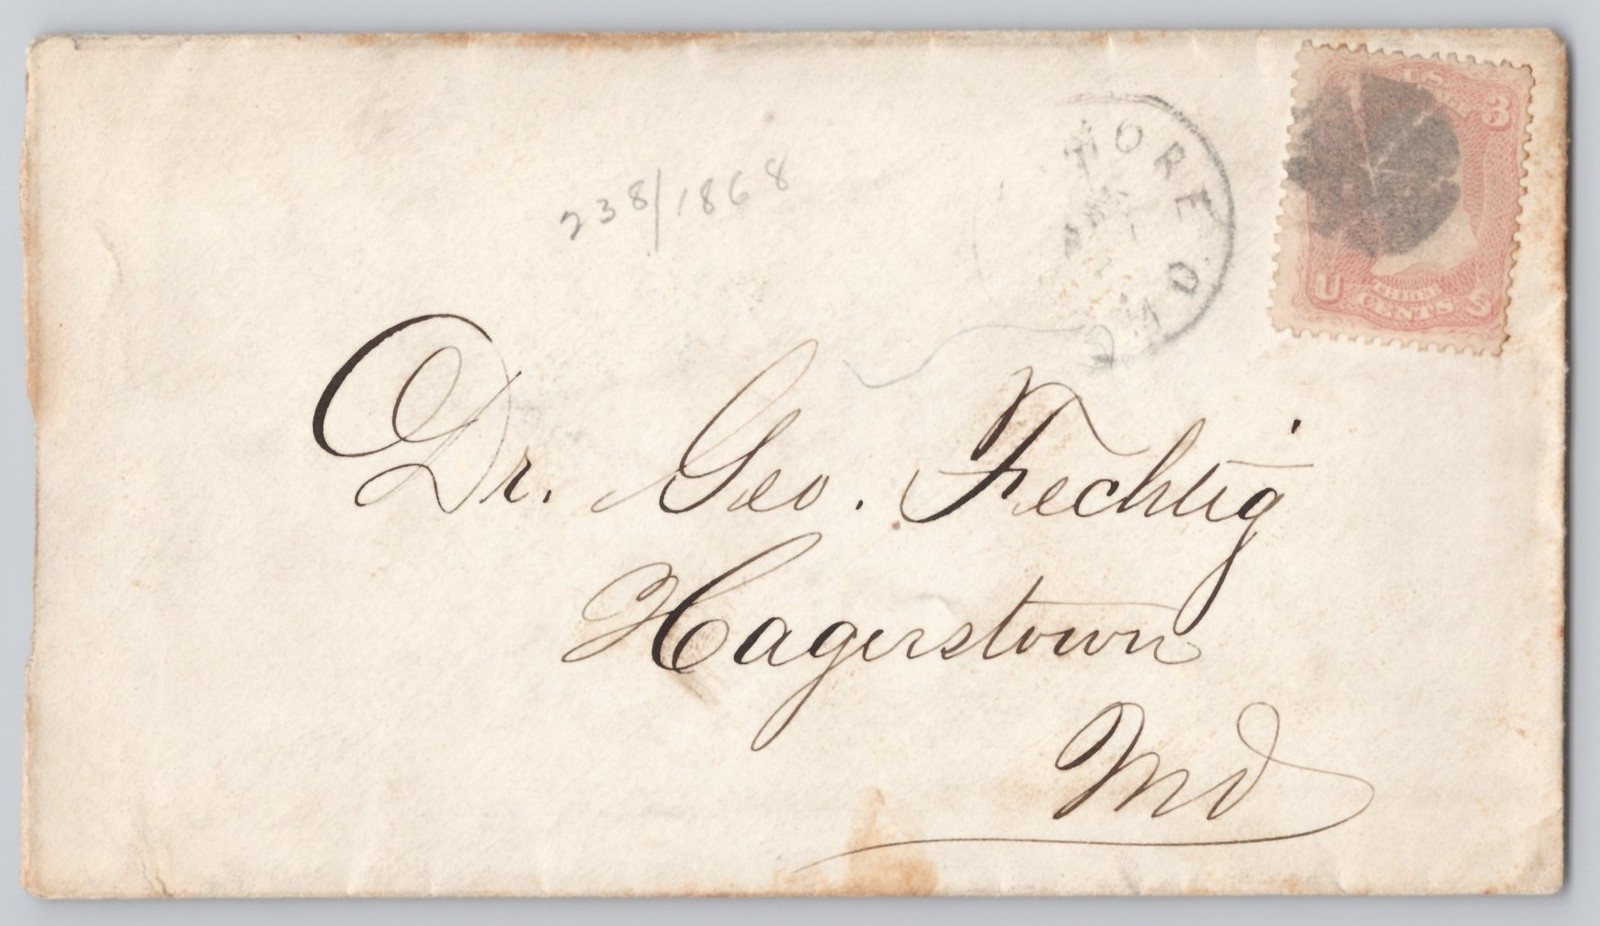 238/1868
MORE
MAR
MD
U.S.
3
U THREE S
CENTS
Dr. Geo. Fechtig
Hagerstown
Md